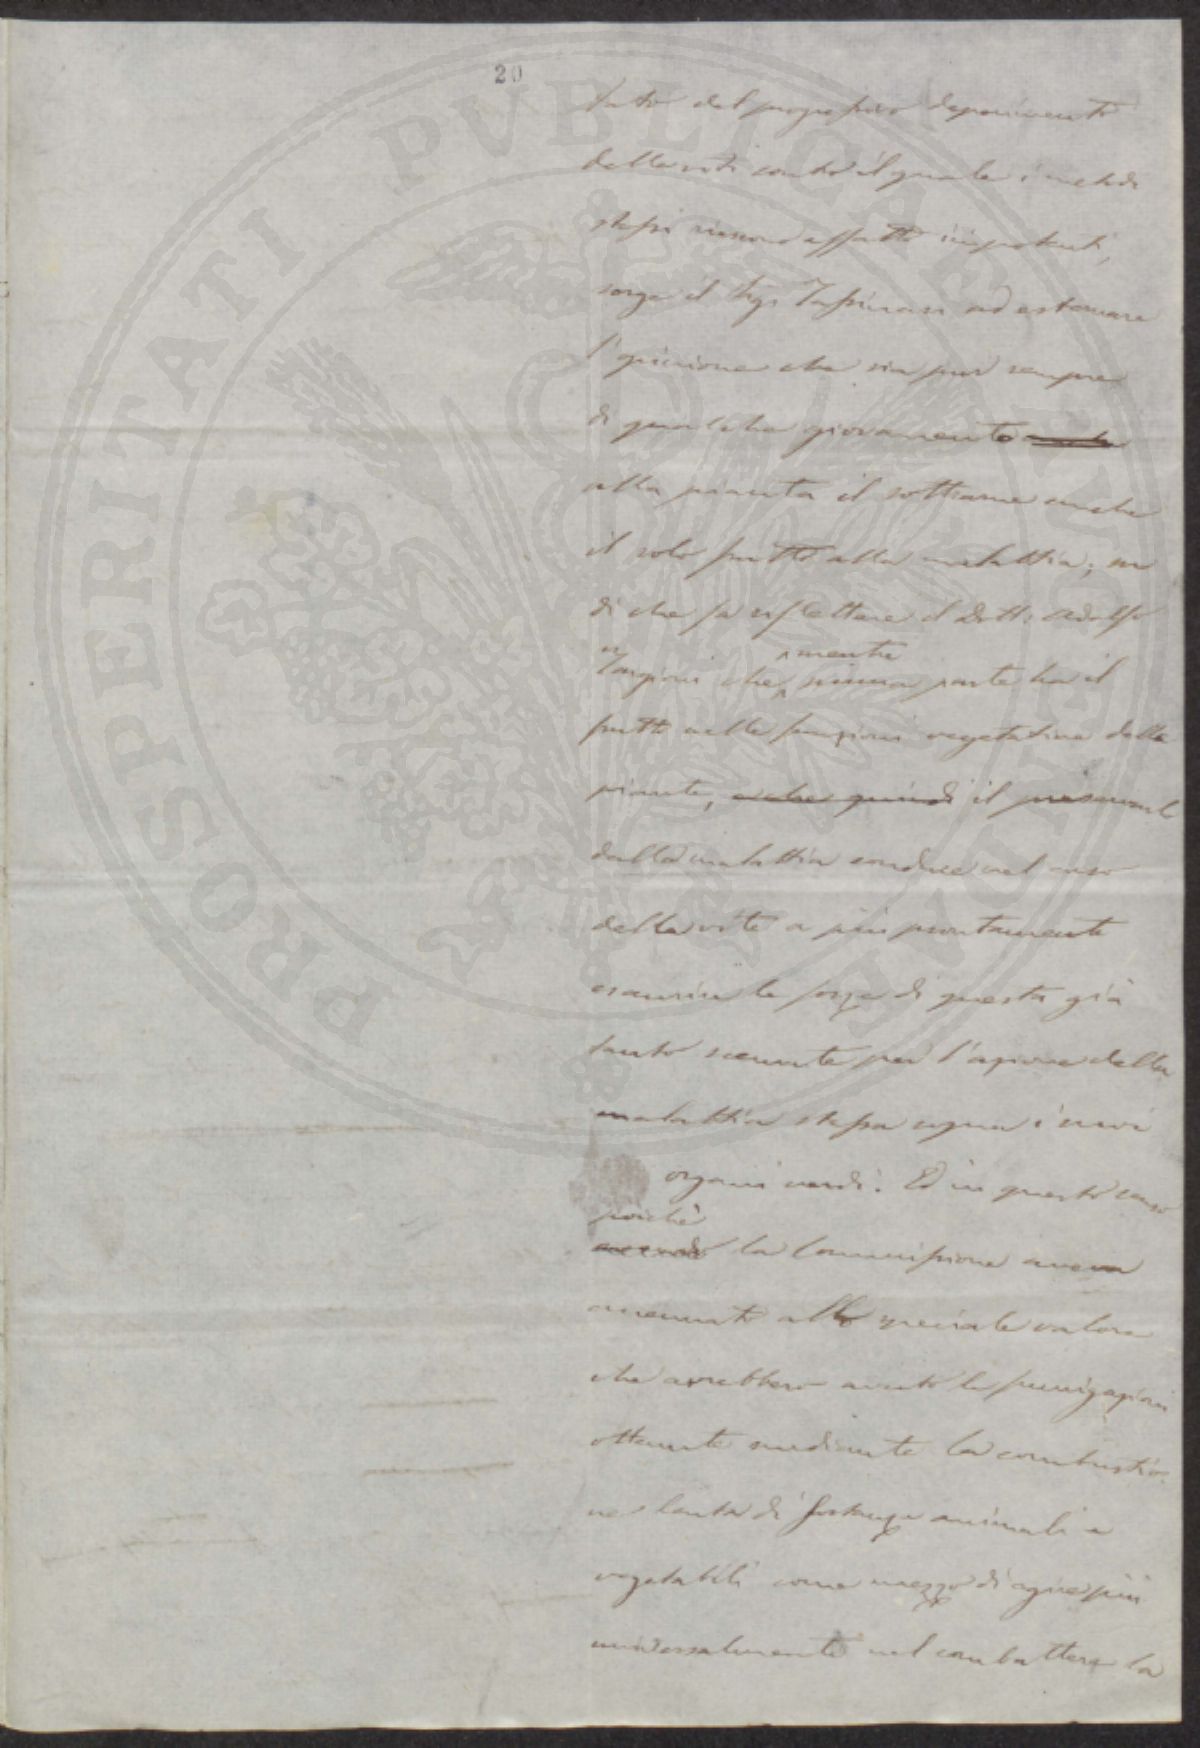 20
lato del progressivo deperimento
della viti contro il quale i metodi
stessi riescono affatto impotenti,
sorge il Sig.
l'opinione che sia pur sempre
di qualche giovamento
alla pianta il sottrarne anche
il solo frutto alla malattia;
di che fa riflettere il Dott. Adolfo
mentre
Targioni che, niuna parte ha il
frutto nelle funzioni vegetative della
piante, e che quindi il
dalla malattia conduce nel caso
della vite a più prontamente
esaurire le forze di questa già
tanto scemate per l'azione della
malattia stessa sopra i suoi
organi verdi. Ed in questo senso
poichè
avendo la Commissione aveva
accennato allo speciale valore
che avrebbero avuto le fumigazioni
ottenute mediante la combustio-
ne lenta di sostanze animali e
vegetabili come mezzo di agire più
universalmente nel combattere la
PROSPERITATI PVBLICAE AVGENDAE